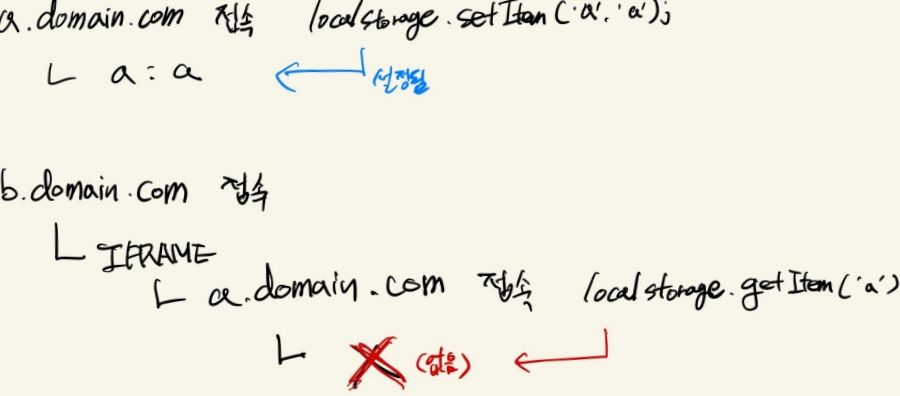 a.domain.com 접속 localstorage.setItem('a','a');
ㄴ a : a
설정됨
b.domain.com 접속
ㄴ IFRAME
ㄴ a.domain.com 접속 localstorage.getItem('a')
ㄴ X (없음)